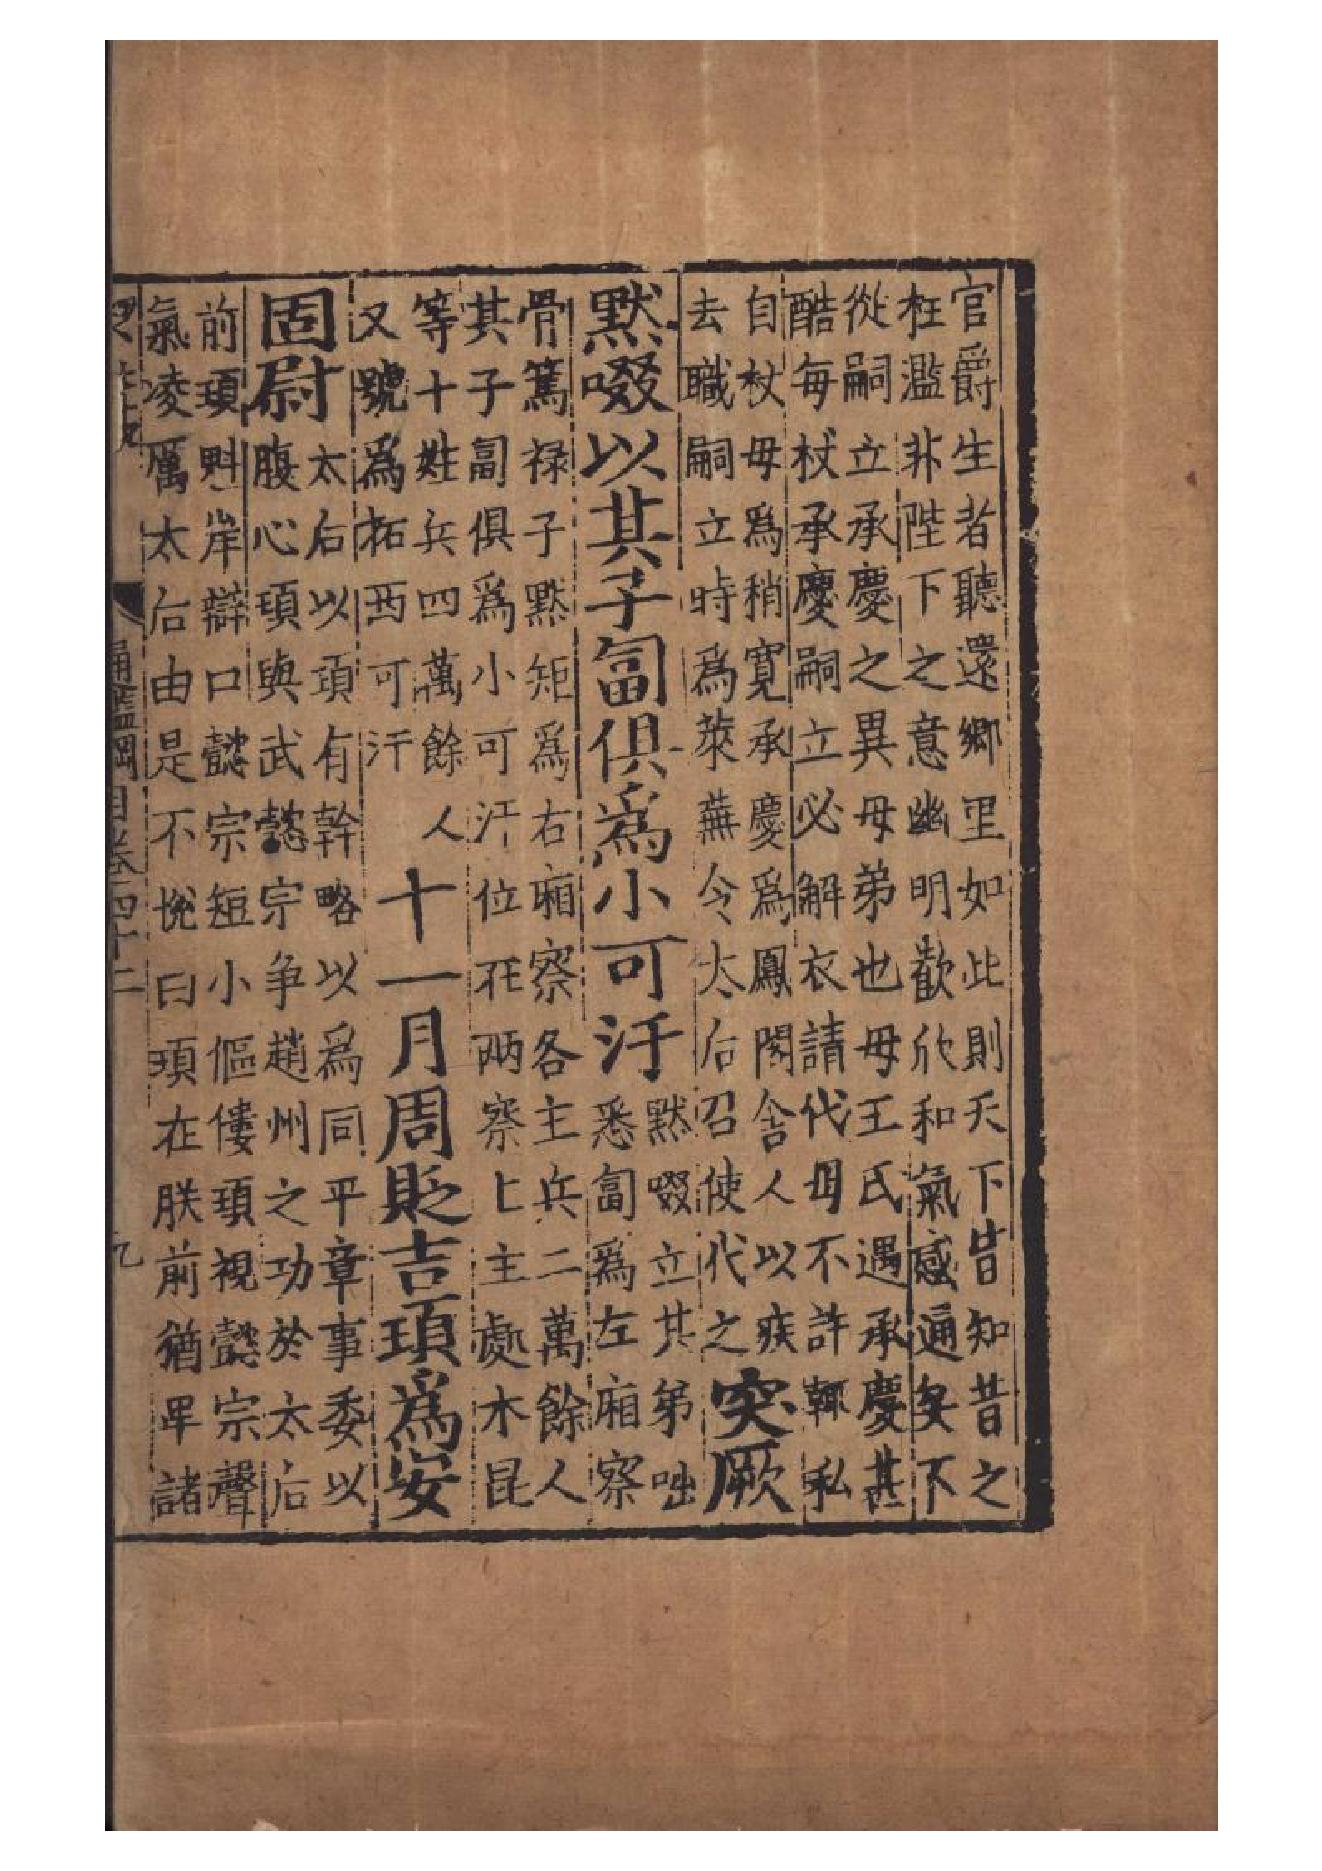 官爵生者聽還鄉里如此則天下皆知昔之
枉濫非陛下之意幽明歡欣和氣感通矣下
從嗣立承慶之異母弟也母王氏遇承慶甚
酷每杖承慶嗣立必解衣請代母不許輒私
自杖母爲稍寬承慶爲鳳閣舍人以疾
去職嗣立時爲萊蕪令太后召使代之
突厥
默啜以其子匐俱爲小可汗
默啜立其弟咄
悉匐爲左廂察
骨篤祿子默矩爲右廂察各主兵二萬餘人
其子匐俱爲小可汗位在兩察上主處木昆
等十姓兵四萬餘人
又號爲拓西可汗
十一月周貶吉頊爲安
固尉
太后以頊有幹略以爲同平章事委以
腹心頊與武懿宗爭趙州之功於太后
前頊魁岸辯口懿宗短小傴僂頊視懿宗聲
氣凌厲太后由是不悅曰頊在朕前猶卑諸
通鑑綱目卷四十二
九